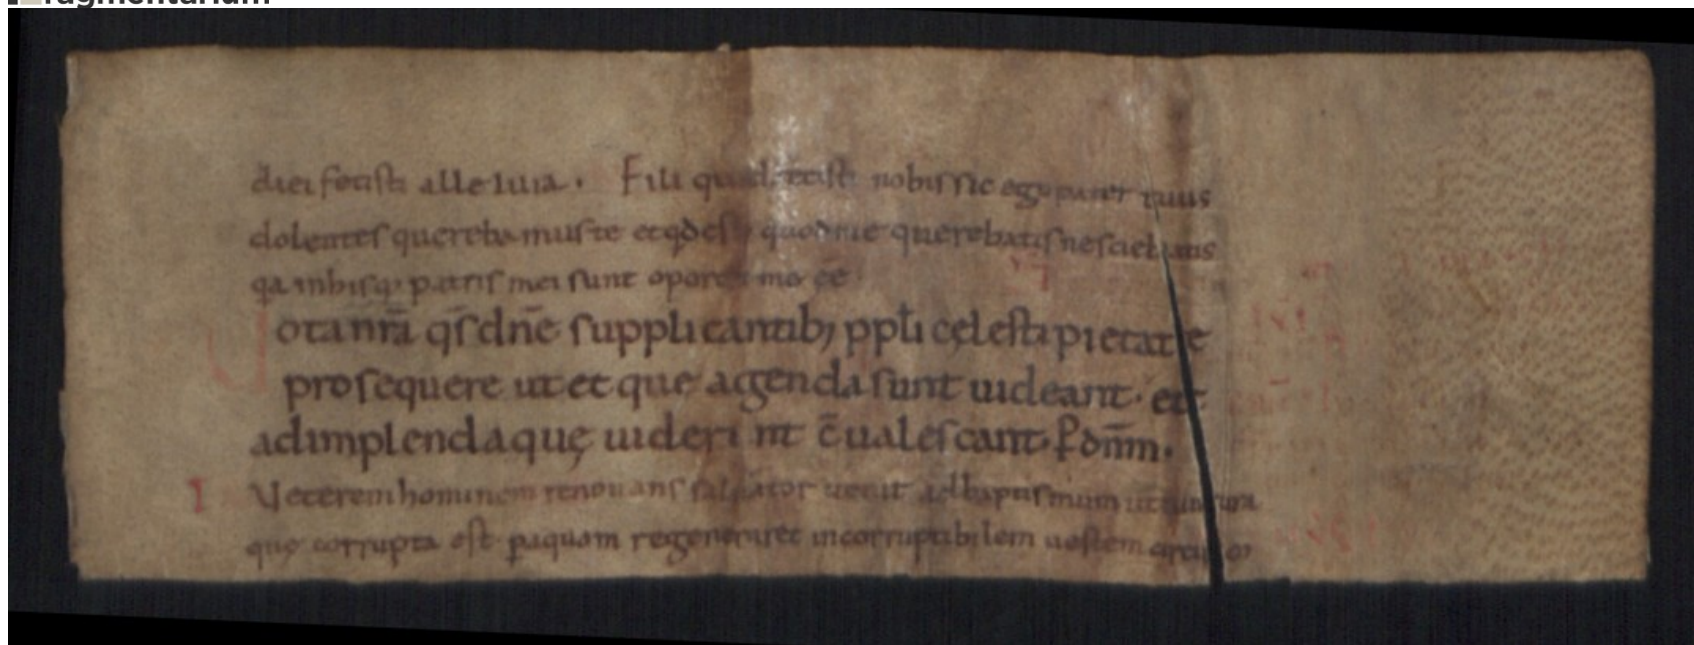 ragmentarium
diei fecisti alleluia. Fili quid fecisti nobis sic ego pater tuus
dolentes querebamus te et qd est quod me querebatis nesciebatis
qa inhisq, patris mei sunt oportet me ēē
Uota nr̄a q̄s dn̄e supplicantib; ppli cęlesti pietate
prosequere ut et que agenda sunt uideant. et
adimplenda quę uiderint c̄ualescant. P dn̄m.
I Veterem hominem renouans saluator uenit ad baptismum ut
quę corrupta est paquam regeneraret incorruptibilem uestem